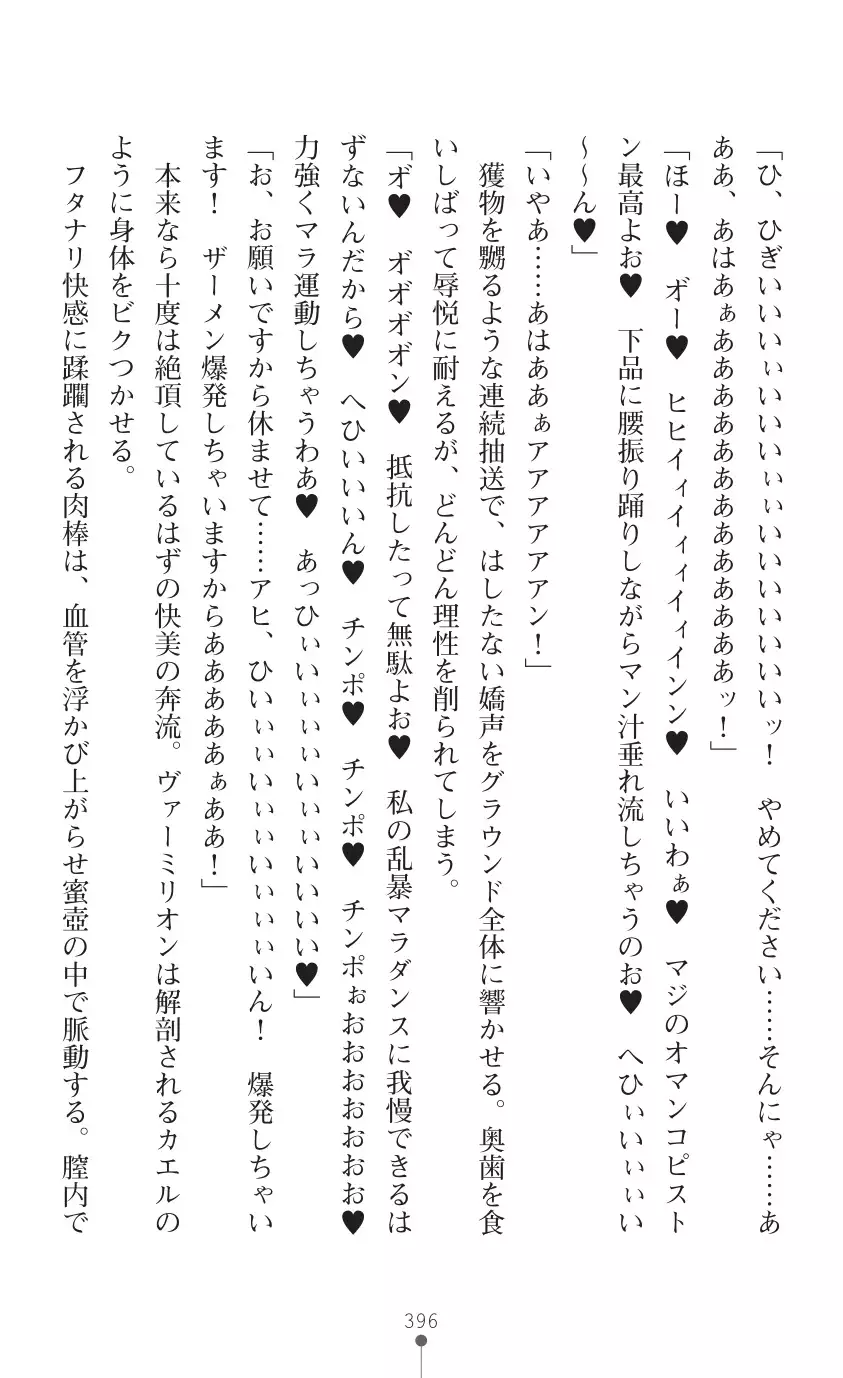 「ひ、ひぎいいいぃいいいいぃぃいいいいいいいッ！　やめてください……そんにゃ……あ
ああ、あはあぁああああああああああああああッ！」
「ほー♥　オ゛ー♥　ヒヒイィイィィイィインン♥　いいわぁ♥　マジのオマンコピスト
ン最高よお♥　下品に腰振り踊りしながらマン汁垂れ流しちゃうのお♥　へひぃいいぃぃい
～～ん♥」
「いやあ……あはああぁアアアアアアン！」
　獲物を嬲るような連続抽送で、はしたない嬌声をグラウンド全体に響かせる。奥歯を食
いしばって辱悦に耐えるが、どんどん理性を削られてしまう。
「オ゛♥　オ゛オ゛オ゛オ゛ン♥　抵抗したって無駄よお♥　私の乱暴マラダンスに我慢できるは
ずないんだから♥　へひいいいん♥　チンポ♥　チンポ♥　チンポぉおおおおおおお♥
力強くマラ運動しちゃうわあ♥　あっひぃいいぃぃいいぃぃいいいい♥」
「お、お願いですから休ませて……アヒ、ひいぃぃいいぃぃいいぃぃぃいん！　爆発しちゃい
ます！　ザーメン爆発しちゃいますからあああああぁああ！」
　本来なら十度は絶頂しているはずの快美の奔流。ヴァーミリオンは解剖されるカエルの
ように身体をビクつかせる。
　フタナリ快感に蹂躙される肉棒は、血管を浮かび上がらせ蜜壺の中で脈動する。膣内で
396